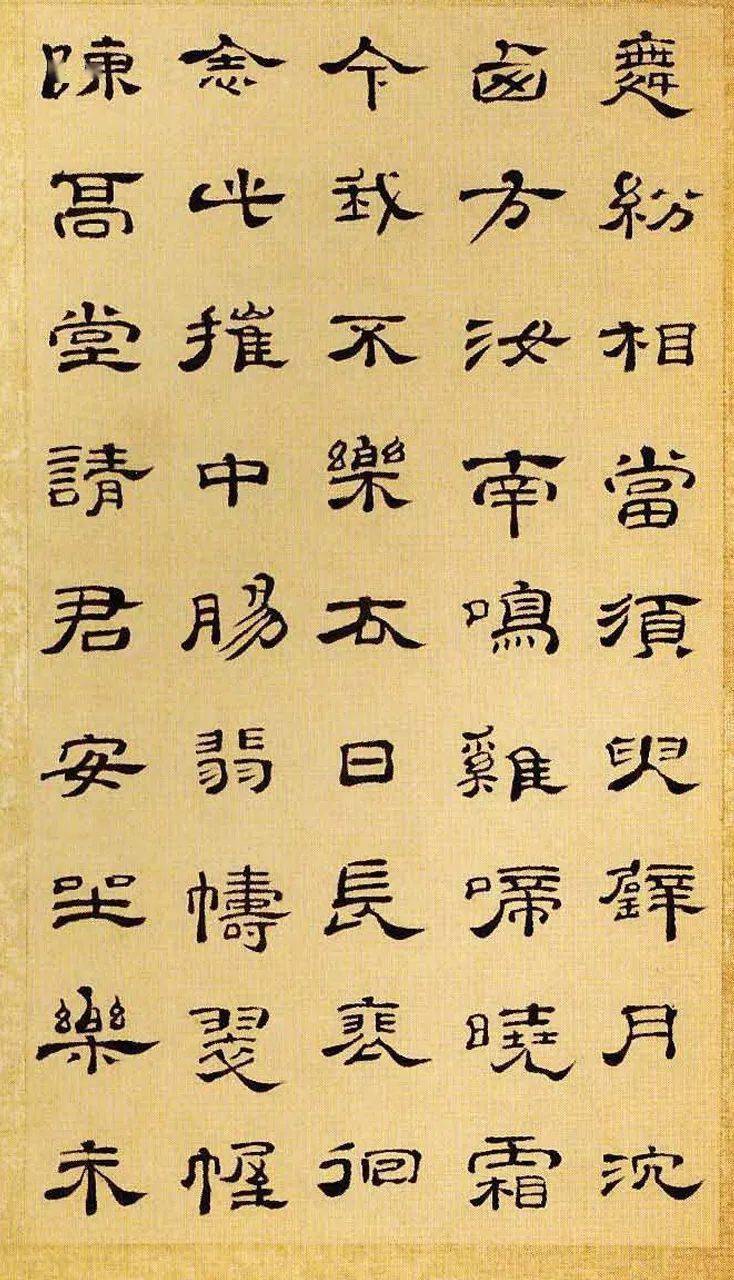 舞紛相當須臾璧月沈
卥方汝南鳴雞啼曉霜
今我不樂去日長裵徊
念此摧中腸翡幬翠幄
陳高堂請君安坐樂未